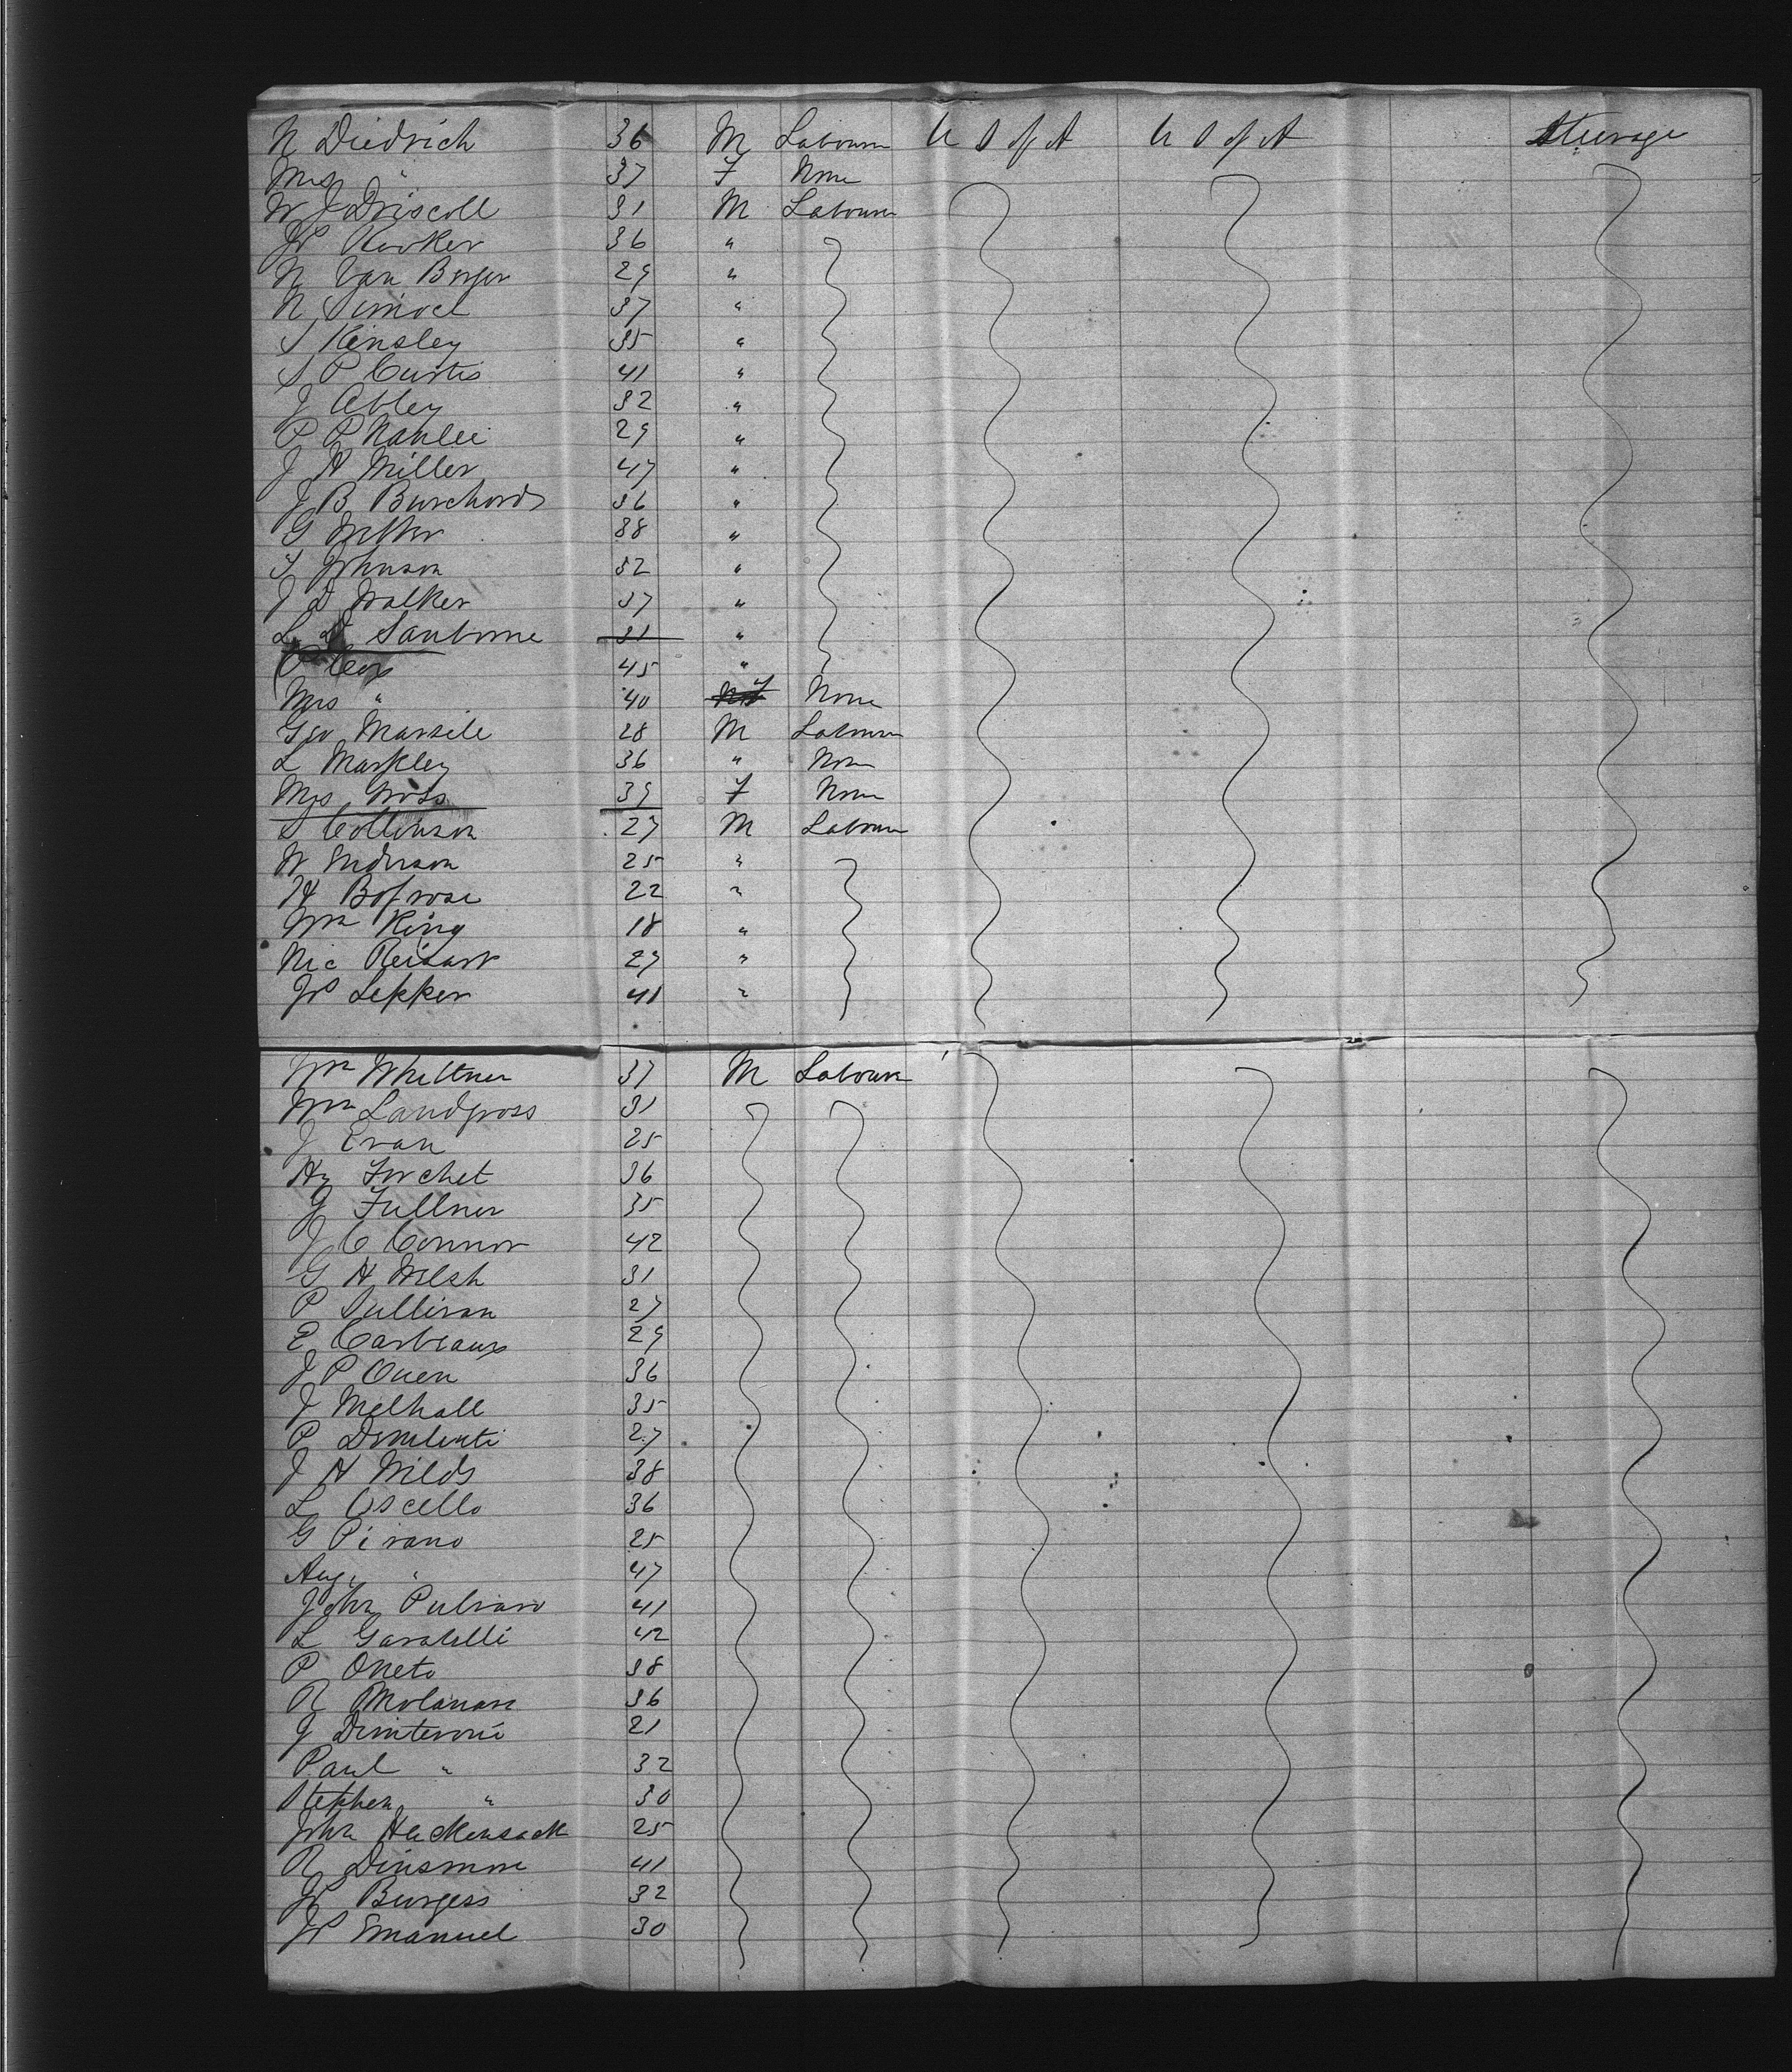 N Diedrich 36 M Labourer U S of A U S of A Steerage
Mrs " 37 F None
W J Driscoll 31 M Labourer
Jno Hooker 36 "
N Van Berger 29 "
N Simoel 37 "
S Kinsley 35 "
S P Curtis 41 "
J Abley 32 "
P P Nanlee 29 "
J H Miller 47 "
J B Burchards 36 "
G 38 "
F Johnson 32 "
J D Walker 37 "
L D Sanborne 31 "
P Cox 45 "
Mrs " 40 F None
Geo Marsile 28 M Labourer
L Markley 36 " None
Mrs Gross 39 F None
S Collinson 27 M Labourer
W Enderson 25 "
H Bofrose 22 "
Wm King 18 "
Nic 27 "
Jno Lepper 41 "
Wm Wheltner 37 M Labourer
Wm Landgross 31
J Evan 25
Hy Forchet 36
G Fullner 35
J C Connor 42
G H Welsh 31
P Sullivan 27
E Carbeaux 29
J P Owen 36
J Melhall 35
P 27
J H Wilds 38
L Oscello 36
G Pirano 25
Aug. " 47
John 41
L Garatelli 42
P Oneto 38
R Molanare 36
G 21
Paul " 32
Stephen " 30
John Heckensack 25
R Dinsmore 41
Jno Burgess 32
Jno Emanuel 30